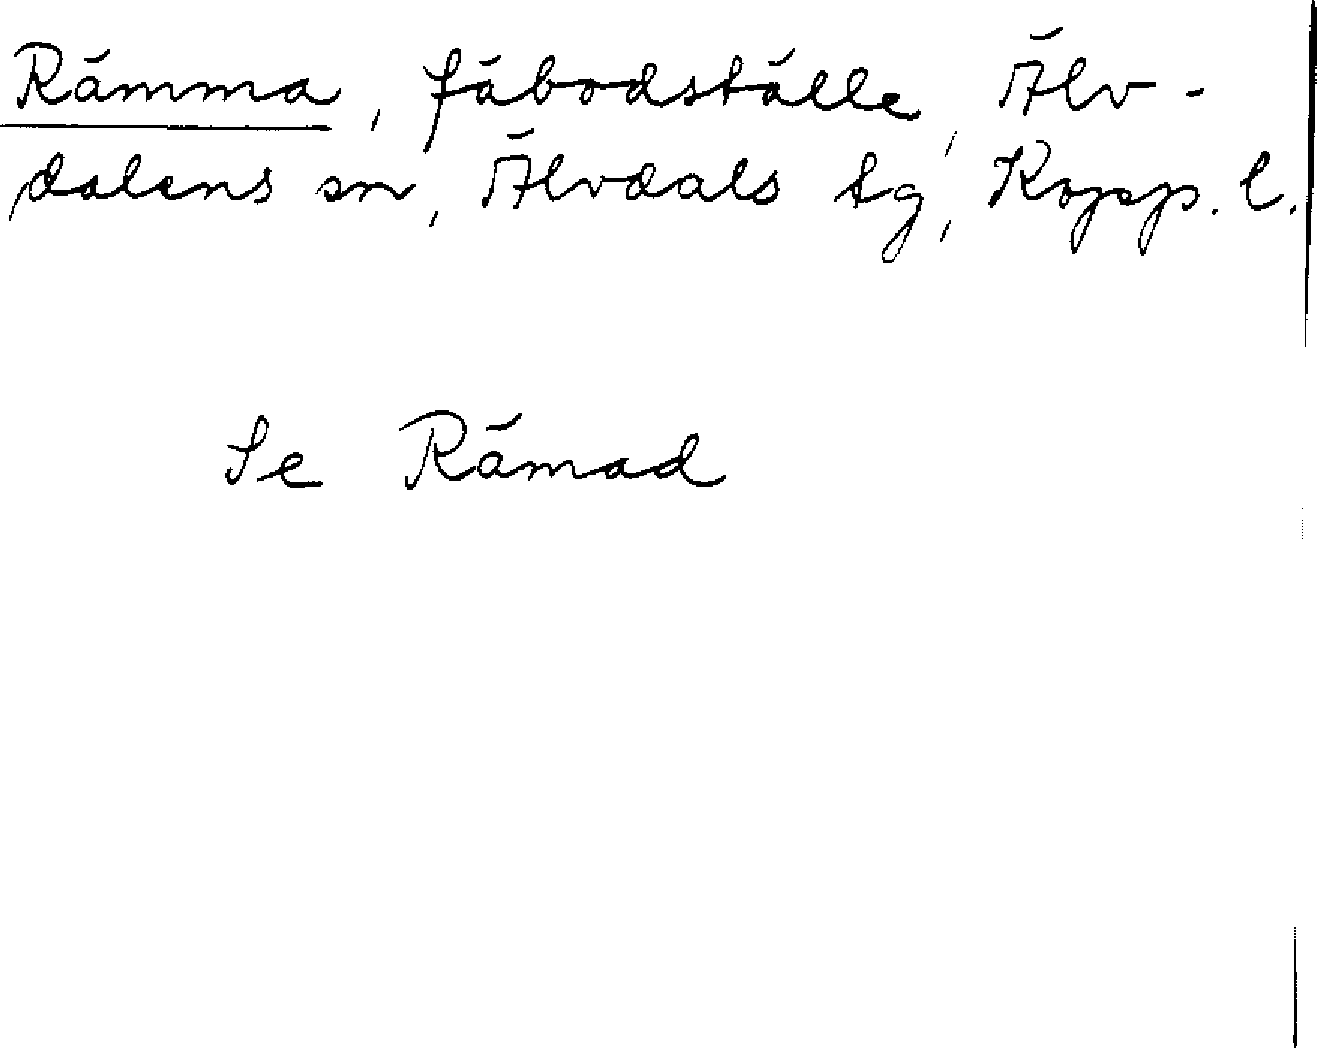 Rämma, fäbodställe, Älv-
dalens sn, Älvdals tg, Kopp. l.
Se Rämad